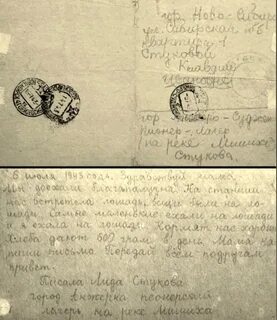 гор. Ново-Сиби
ул. Сибирская № 6
Квартира 1
Стуковой
Клавдии
Ивановне
гор.
Судженск
Пионер-лагерь
на реке Мишиха
Стукова.
6 июля 1943 года. Здравствуй мама.
Мы доехали благополучно. На станции
нас встретила лошадь, вещи были на ло-
шади. Самые маленькие ехали на лошади
и я ехала на лошади. Кормят нас хорошо
Хлеба дают 600 грам в день. Мама на
пиши письмо. Передай всем подругам
привет.
Писала Лида Стукова
город Анжерка пеонерский
лагерь на реке Мишиха